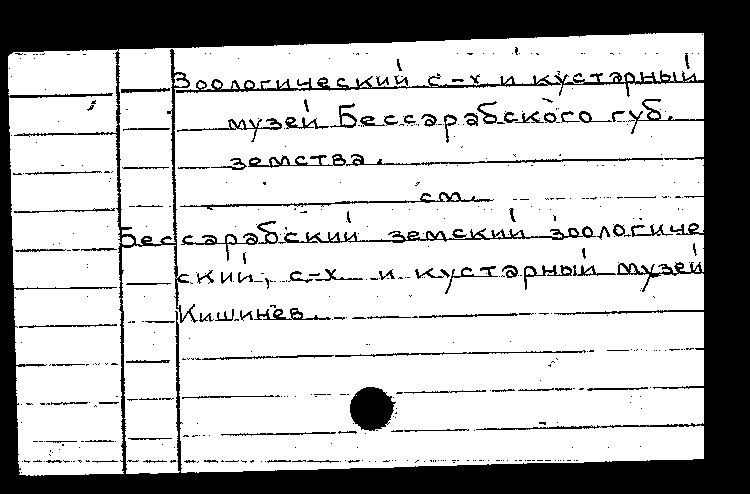 Зоологический с-х и кустарный
музей Бессарабского губ.
земства.
см.
Бессарабский земский зоологиче
ский, с-х и кустарный музей
Кишинев.